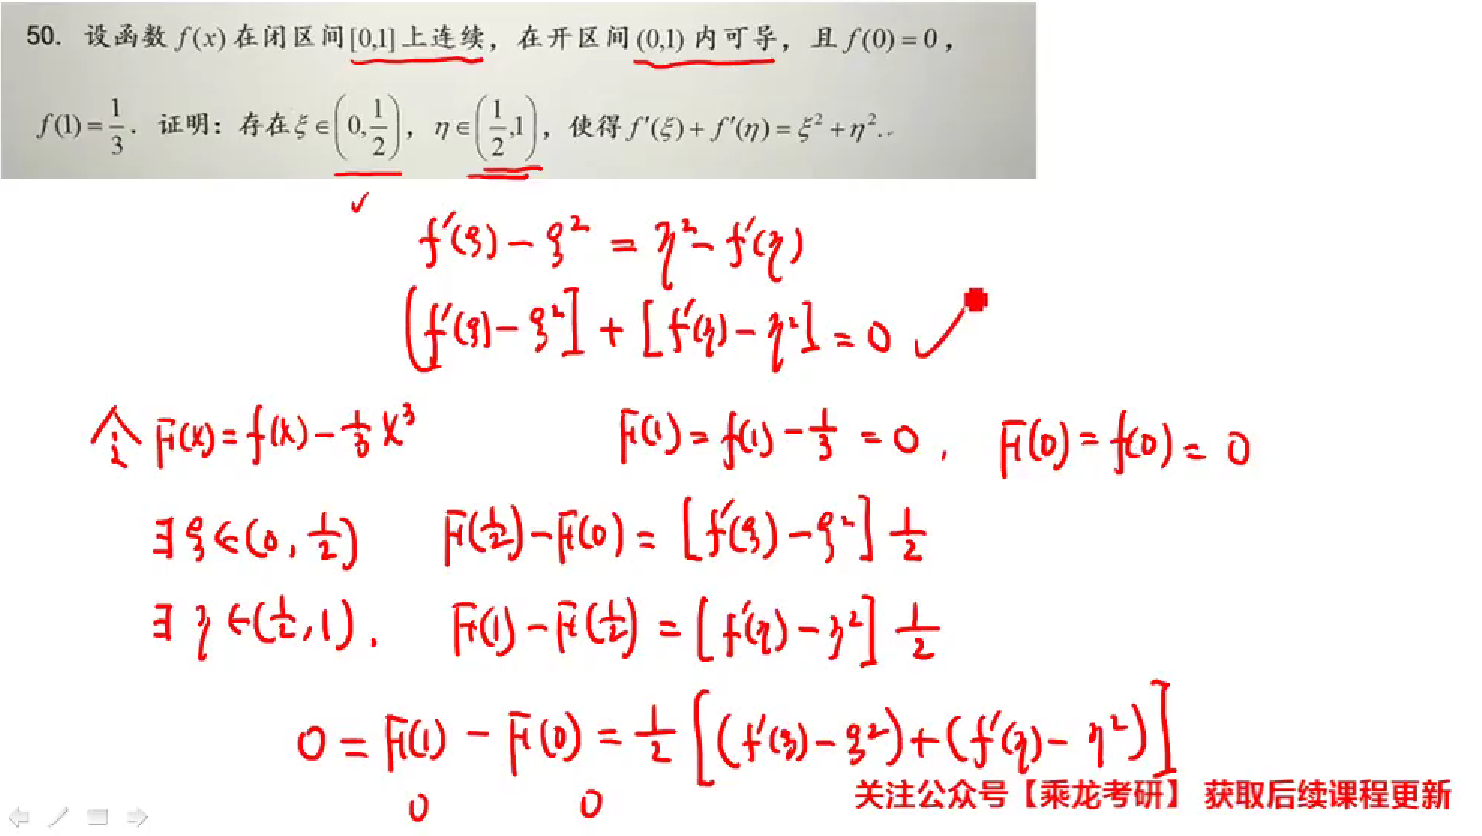 50. 设函数 f(x) 在闭区间 [0,1] 上连续，在开区间 (0,1) 内可导，且 f(0) = 0，
f(1) = 1/3. 证明：存在 ξ ∈ (0, 1/2)，η ∈ (1/2, 1)，使得 f′(ξ) + f′(η) = ξ² + η².
f′(ξ) − ξ² = η² − f′(η)
[f′(ξ) − ξ²] + [f′(η) − η²] = 0 ✓
令 F(x) = f(x) − 1/3 x³ F(1) = f(1) − 1/3 = 0, F(0) = f(0) = 0
∃ ξ ∈ (0, 1/2) F(1/2) − F(0) = [f′(ξ) − ξ²] 1/2
∃ η ∈ (1/2, 1), F(1) − F(1/2) = [f′(η) − η²] 1/2
0 = F(1) − F(0) = 1/2 [(f′(ξ) − ξ²) + (f′(η) − η²)]
0 0
关注公众号【乘龙考研】 获取后续课程更新